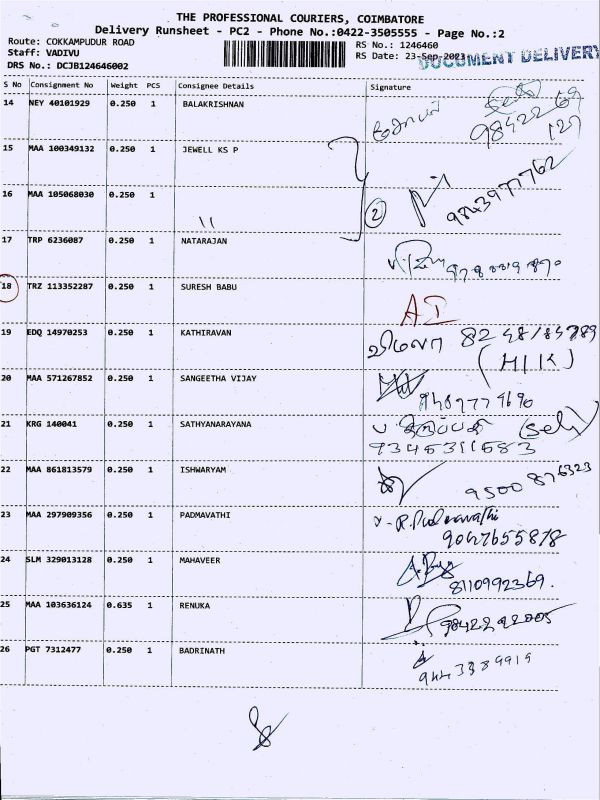 THE PROFESSIONAL COURIERS, COIMBATORE
Delivery Runsheet - PC2 - Phone No.:0422-3505555 - Page No.:2
Route: COKKAMPUDUR ROAD
Staff: VADIVU
DRS No.: DCJB124646002
RS No.: 1246460
RS Date: 23-Sep-2023
DOCUMENT DELIVERY
S No Consignment No Weight PCS Consignee Details Signature
14 NEY 40101929 0.250 1 BALAKRISHNAN
98422 69
127
15 MAA 100349132 0.250 1 JEWELL KS P
16 MAA 105068030 0.250 1 11
2 9843977762
17 TRP 6236087 0.250 1 NATARAJAN
18 TRZ 113352287 0.250 1 SURESH BABU
AI
19 EDQ 14970253 0.250 1 KATHIRAVAN
விமலா
(H/K)
20 MAA 571267852 0.250 1 SANGEETHA VIJAY
21 KRG 140041 0.250 1 SATHYANARAYANA
(Self)
9345311583
22 MAA 861813579 0.250 1 ISHWARYAM
9500876323
23 MAA 297909356 0.250 1 PADMAVATHI
R. Padmavathi
9047655878
24 SLM 329013128 0.250 1 MAHAVEER
8110992369.
25 MAA 103636124 0.635 1 RENUKA
9842292005
26 PGT 7312477 0.250 1 BADRINATH
9443389919